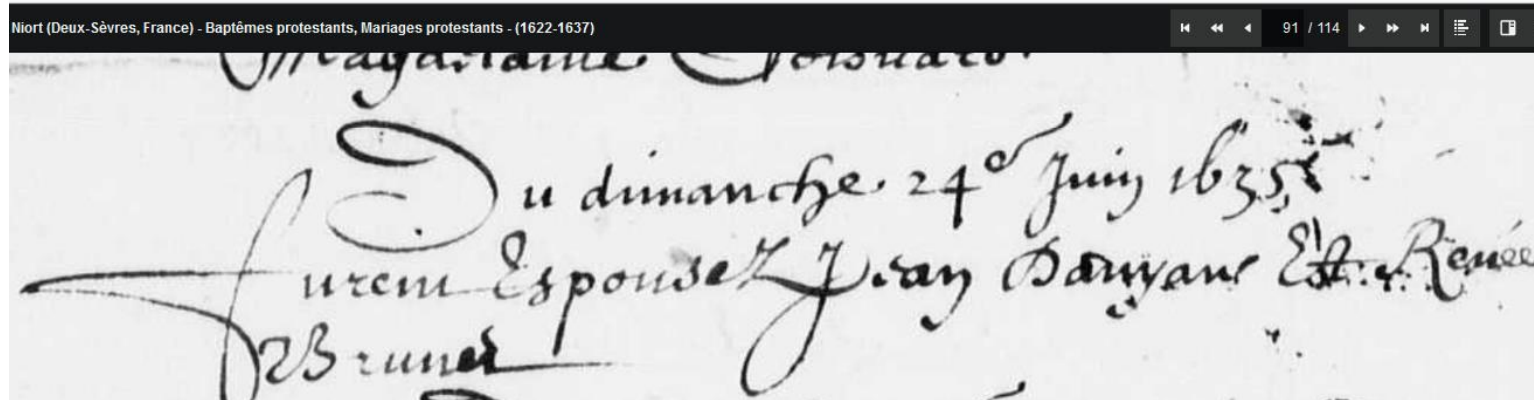 Niort (Deux-Sèvres, France) - Baptêmes protestants, Mariages protestants - (1622-1637)
91 / 114
Magdelaine
Du dimanche 24e Juin 1635
furent Espousez Jean Et Renée
Brunet